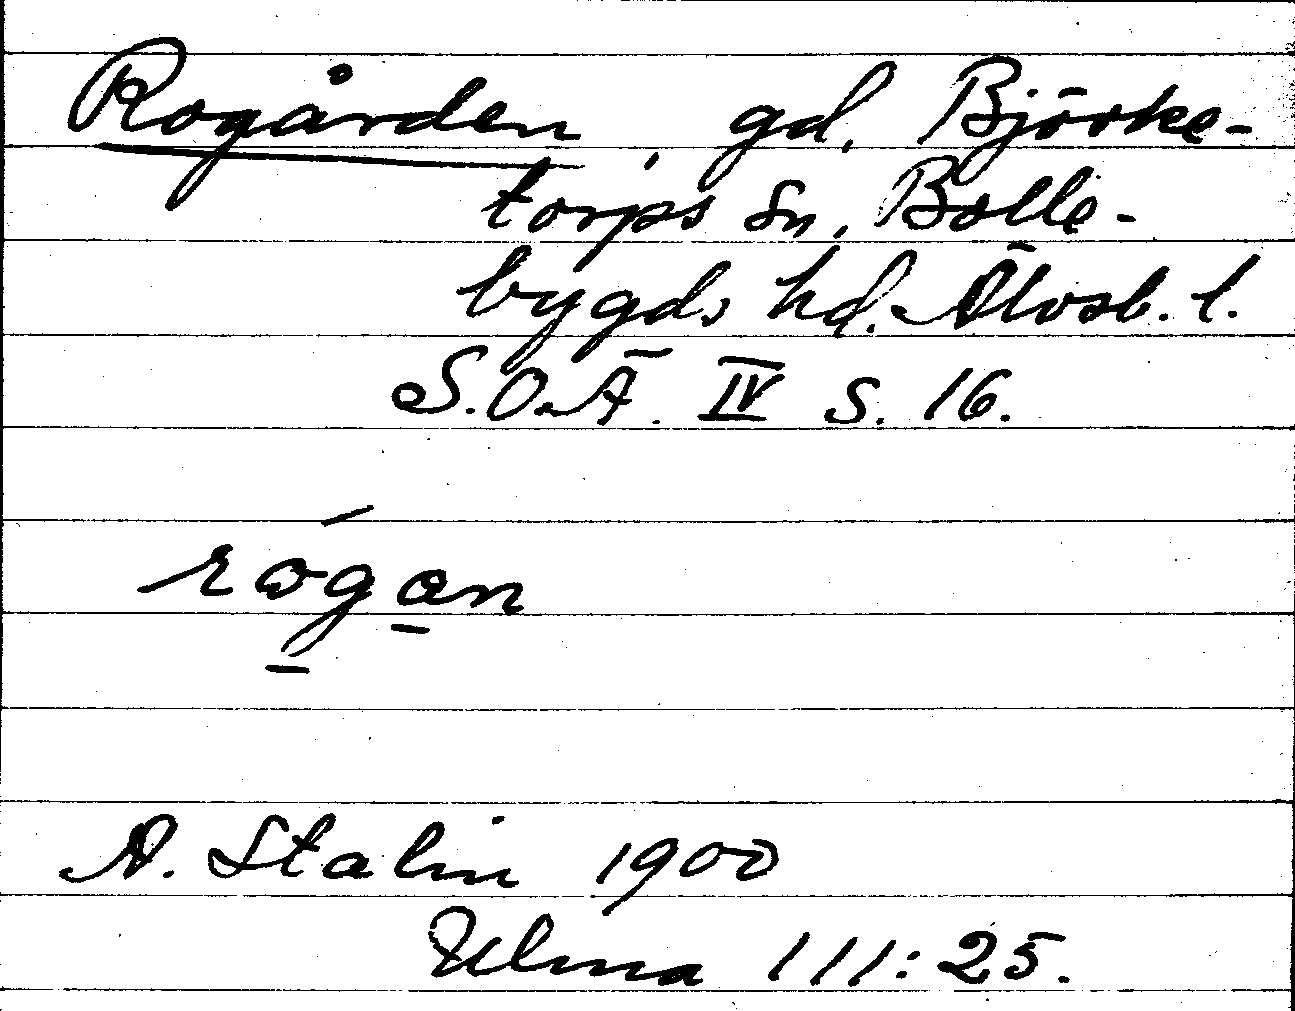 Rogården, gd, Björke-
torps sn, Bolle-
bygds hd. Älvsb. l.
S.O.Ä. IV s. 16.
A. Stalin 1900
Ulma 111:25.